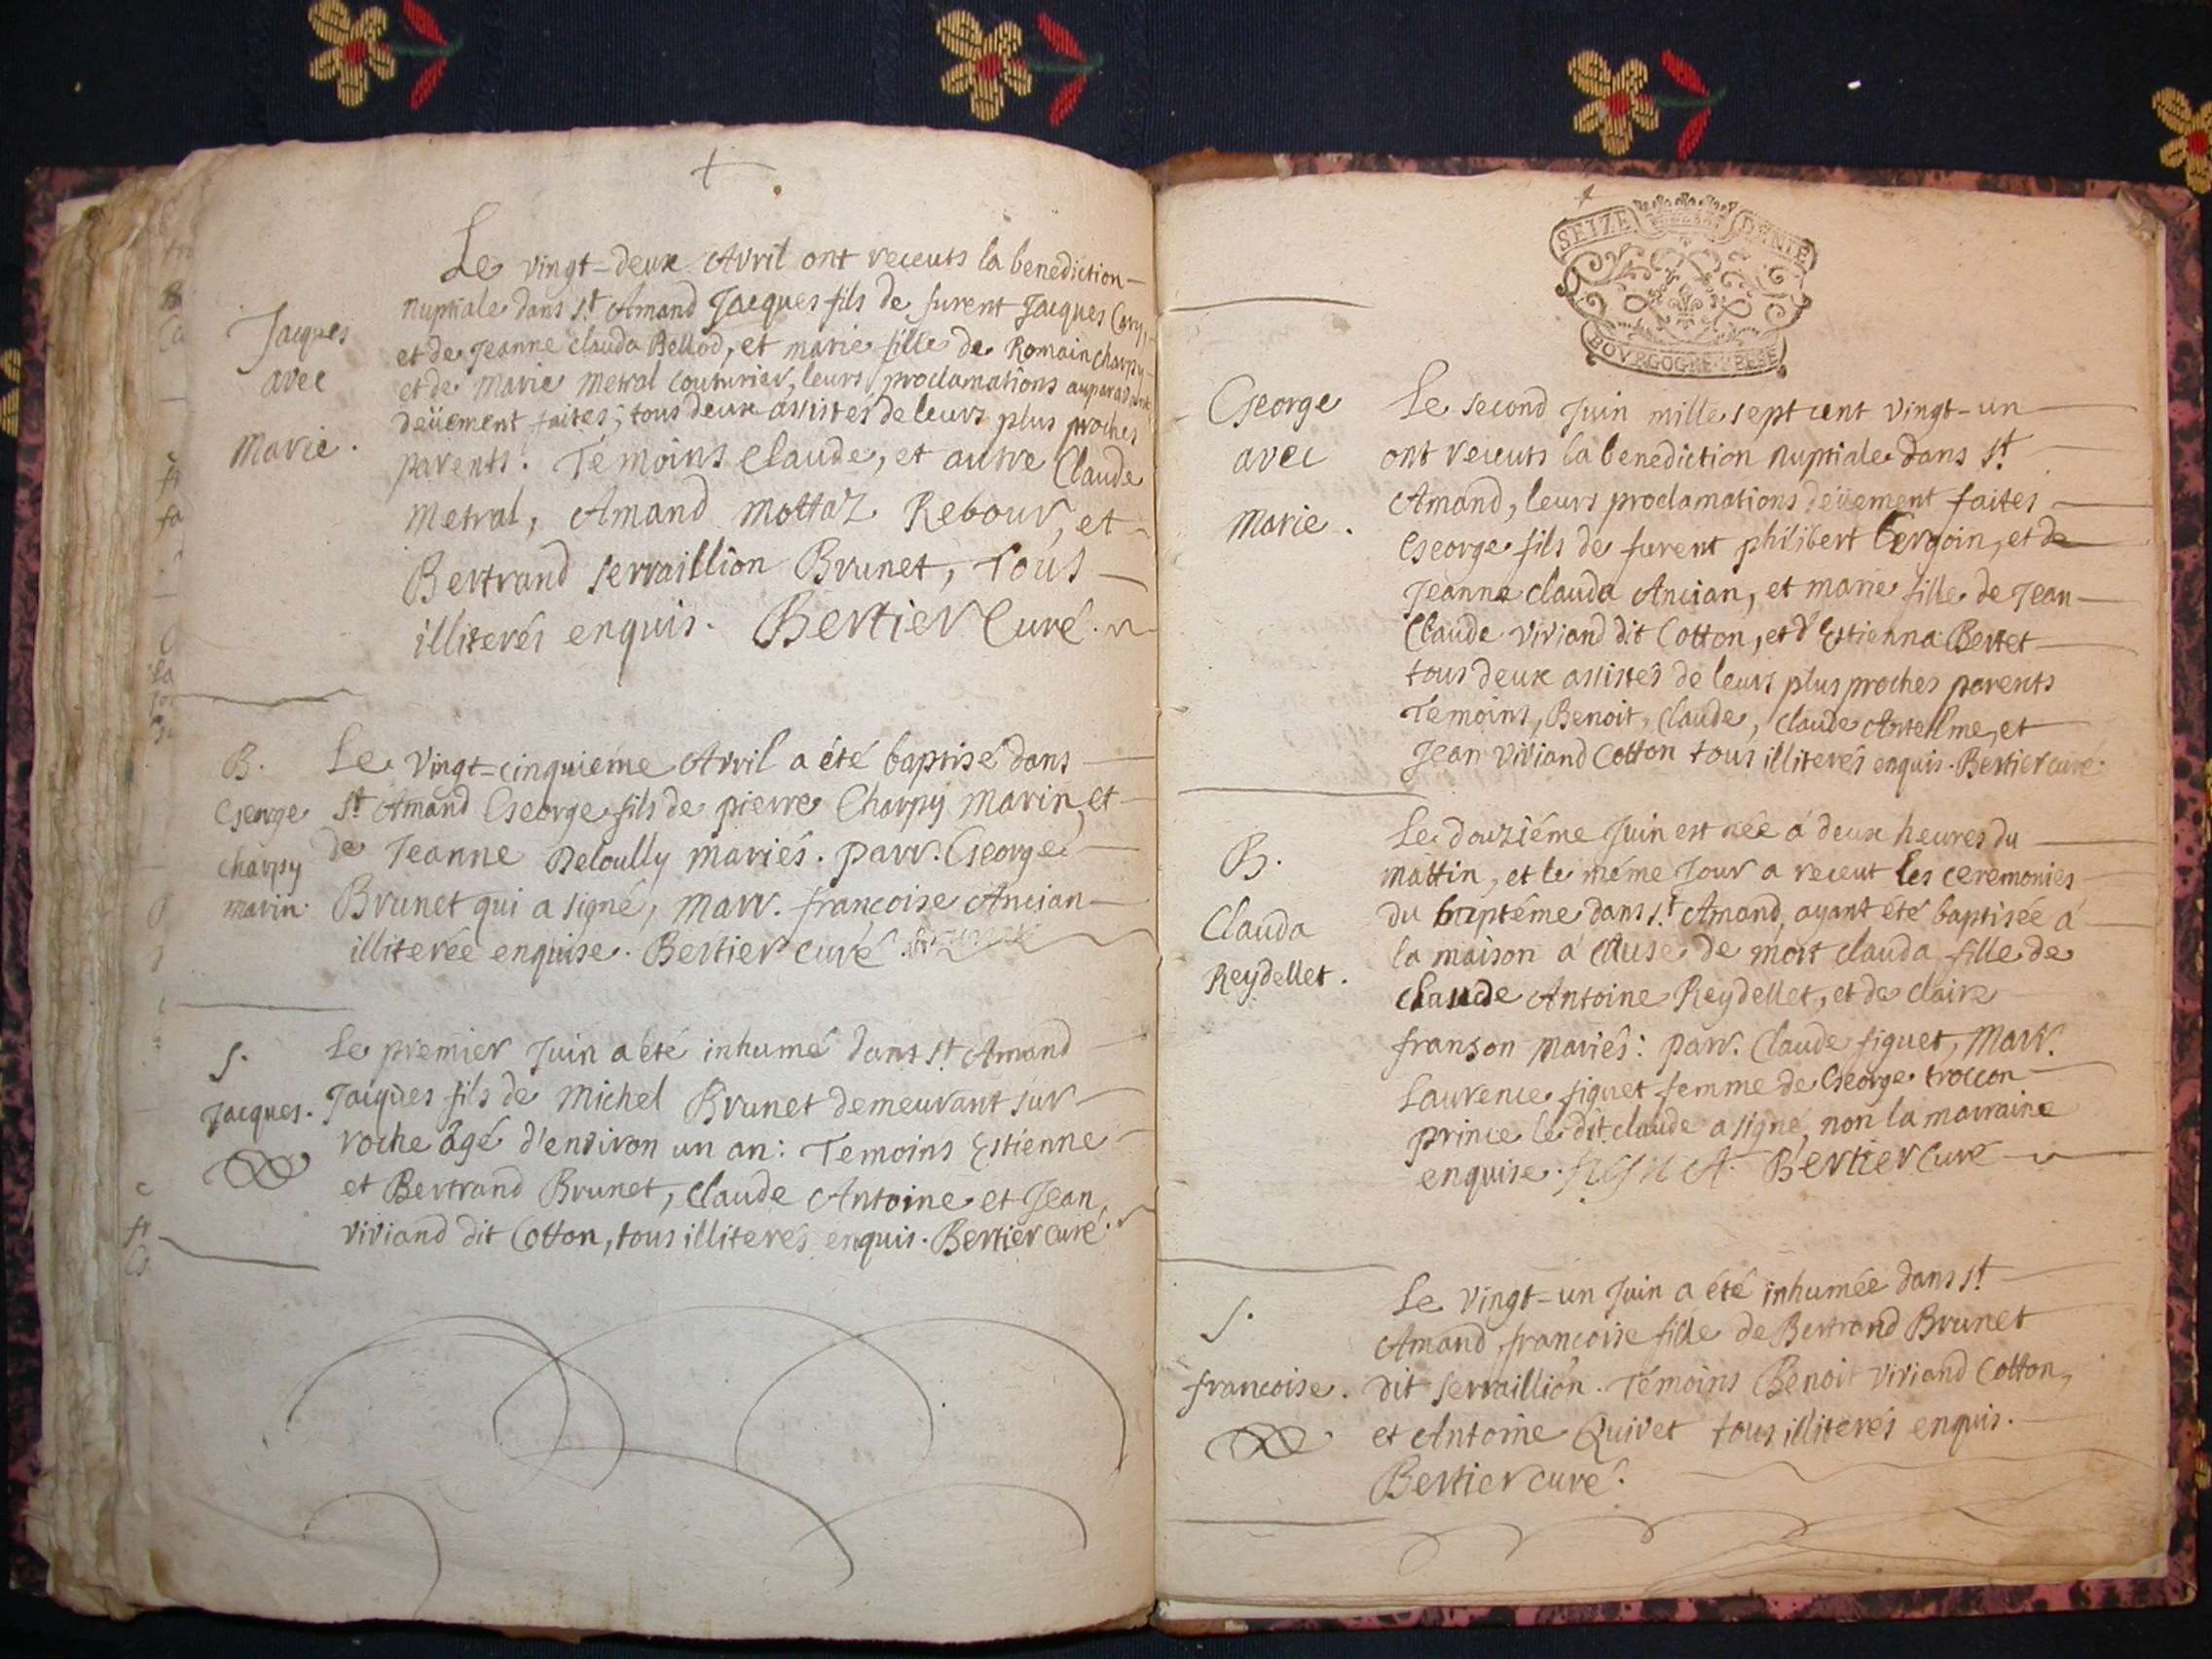 Le vingt-deux Avril ont receuts la benediction
nuptiale dans St Amand Jacques fils de furent Jacques
Jacques
et de Jeanne clauda Bellod, et marie fille de Romain charpy
avec
et de Marie metral couturier, leurs proclamations auparavant
deüement faites; tous deux assistés de leurs plus proches
Marie.
parents. Témoins Claude, et autre Claude
Metral, Amand mottaz Rebour, et
Bertrand serraillion Brunet, Tous
illiterés enquis. Bertier Curé.
B.
Le vingt-cinquiéme Avril a été baptisé dans
George
St Amand George fils de pierre Charpy marin, et
charpy
de Jeanne Deloully mariés. parr. George
marin.
Brunet qui a signé, marr. francoise Ancian
illiterée enquise. Bertier curé. Brunet
S.
Le premier Juin a été inhumé dans St Amand
Jacques.
Jacques fils de Michel Brunet demeurant sur
roche âgé d'environ un an: Temoins Estienne
et Bertrand Brunet, Claude Antoine et Jean
viviand dit Cotton, tous illiterés enquis. Bertier curé.
SEIZE DENIE
BOVRGOGNE BRESSE
George
Le second Juin mille sept cent vingt-un
avec
ont receuts la benediction nuptiale dans St
Amand, leurs proclamations deüement faites
Marie.
George fils de furent philibert et de
Jeanne clauda Ancian, et marie fille de Jean
Claude viviand dit Cotton, et d'Estienna Bertet
tous deux assistés de leurs plus proches parents
Témoins, Benoit, Claude, Claude Antelme, et
Jean viviand Cotton tous illiterés enquis. Bertier curé.
B.
Le douziéme Juin est née á deux heures du
mattin, et le méme Jour a receut les ceremonies
Clauda
du baptéme dans St Amand, ayant été baptisée á
Reydellet.
la maison á cause de mort clauda fille de
Claude Antoine Reydellet, et de claire
franson mariés: parr. Claude figuet, Marr.
Laurence figuet femme de George troccon
prince le dit claude a signé, non la marraine
enquise. Bertier Curé
S.
Le vingt-un Juin a été inhumée dans St
Amand, francoise fille de Bertrand Brunet
francoise.
dit serraillion. Témoins Benoit viviand Cotton,
et Antoine Quivet tous illiterés enquis.
Bertier curé.